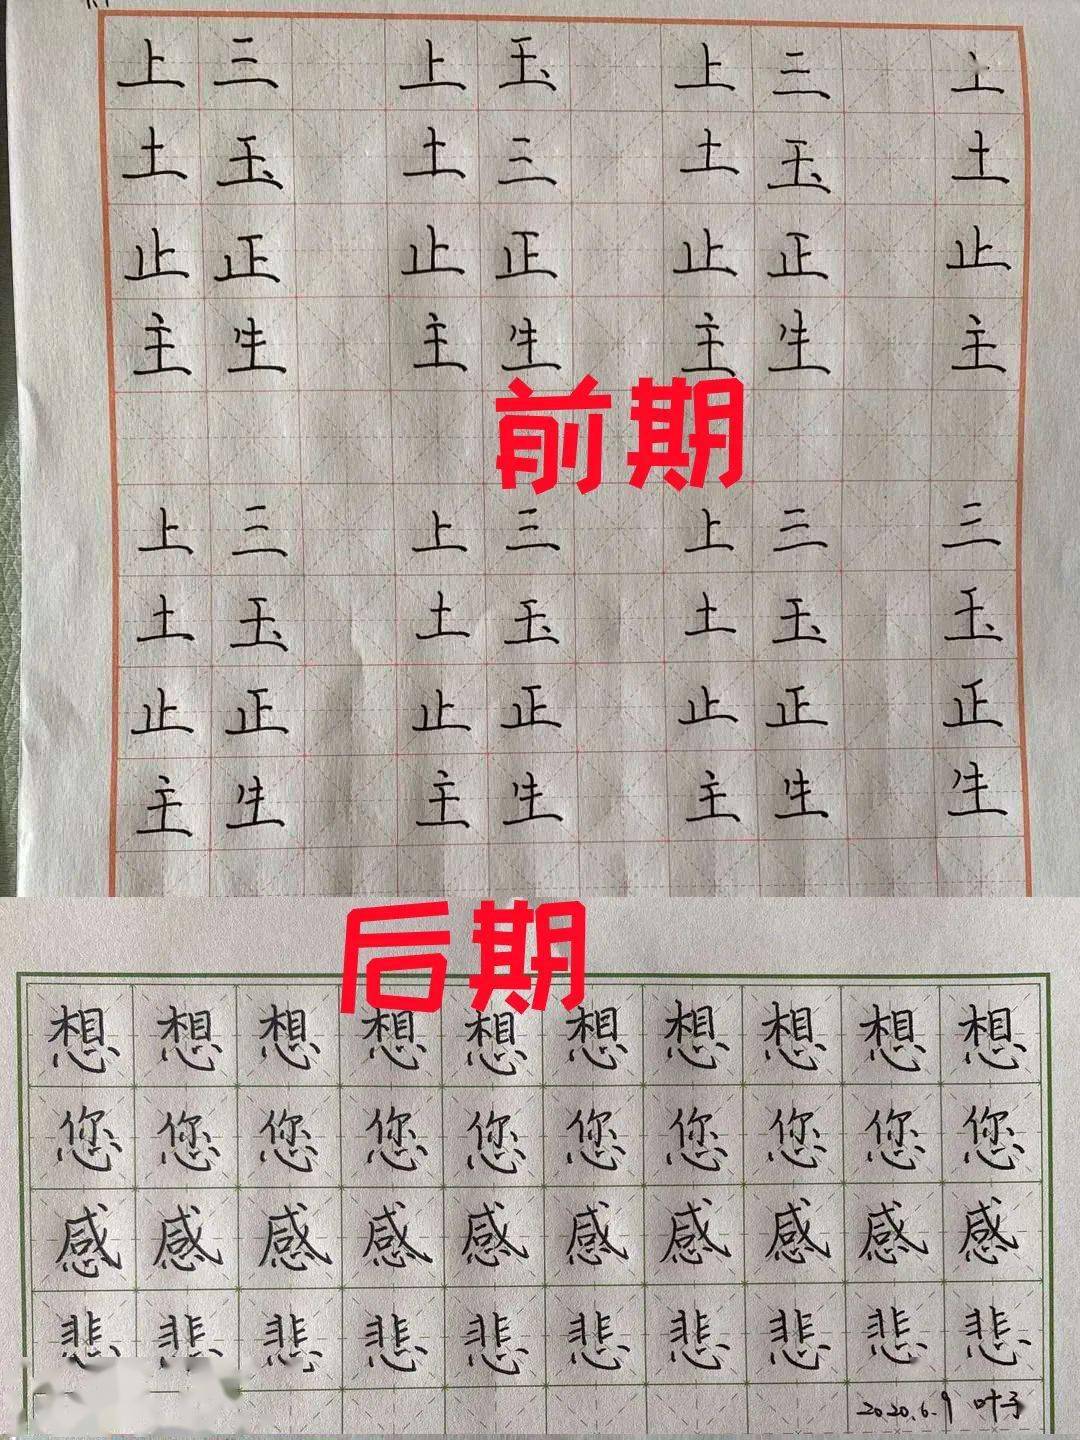 上三 上玉 上三 上
土玉 土三 土玉 土
止正 止正 止正 止
主生 主生 主生 主
前期
上三 上三 上三 三
土玉 土玉 土玉 玉
止正 止正 止正 正
主生 主生 主生 生
后期
想想想想想想想想想想
您您您您您您您您您您
感感感感感感感感感感
悲悲悲悲悲悲悲悲悲悲
2020.6.9 叶子